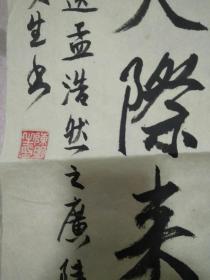 天際来
送孟浩然之廣陵
生书